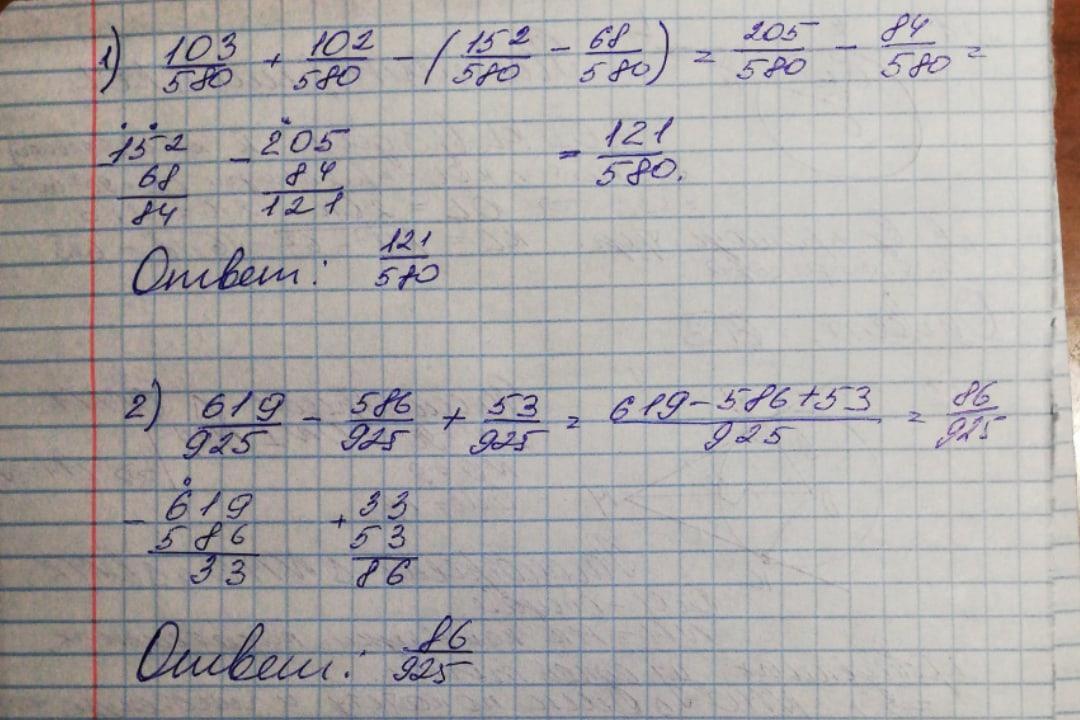 1) 103/580 + 102/580 - (152/580 - 68/580) = 205/580 - 84/580 =
= 121/580.
-152 -205
68 84
84 121
Ответ: 121/580
2) 619/925 - 586/925 + 53/925 = 619-586+53/925 = 86/925
-619 +33
586 53
33 86
Ответ: 86/925